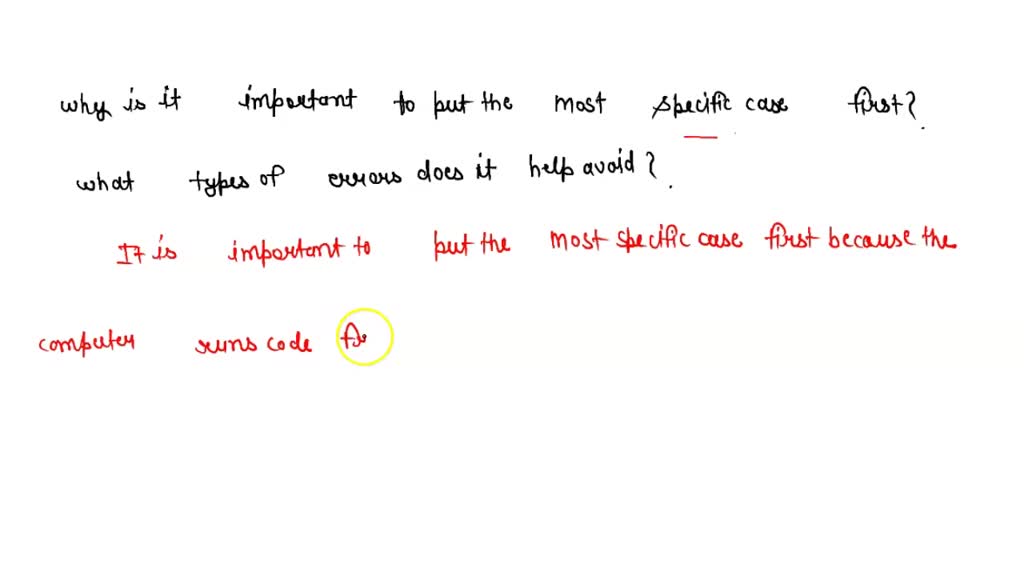 why is it important to put the most specific case first?
what types of errors does it help avoid?
It is important to put the most specific case first because the
computer runs code